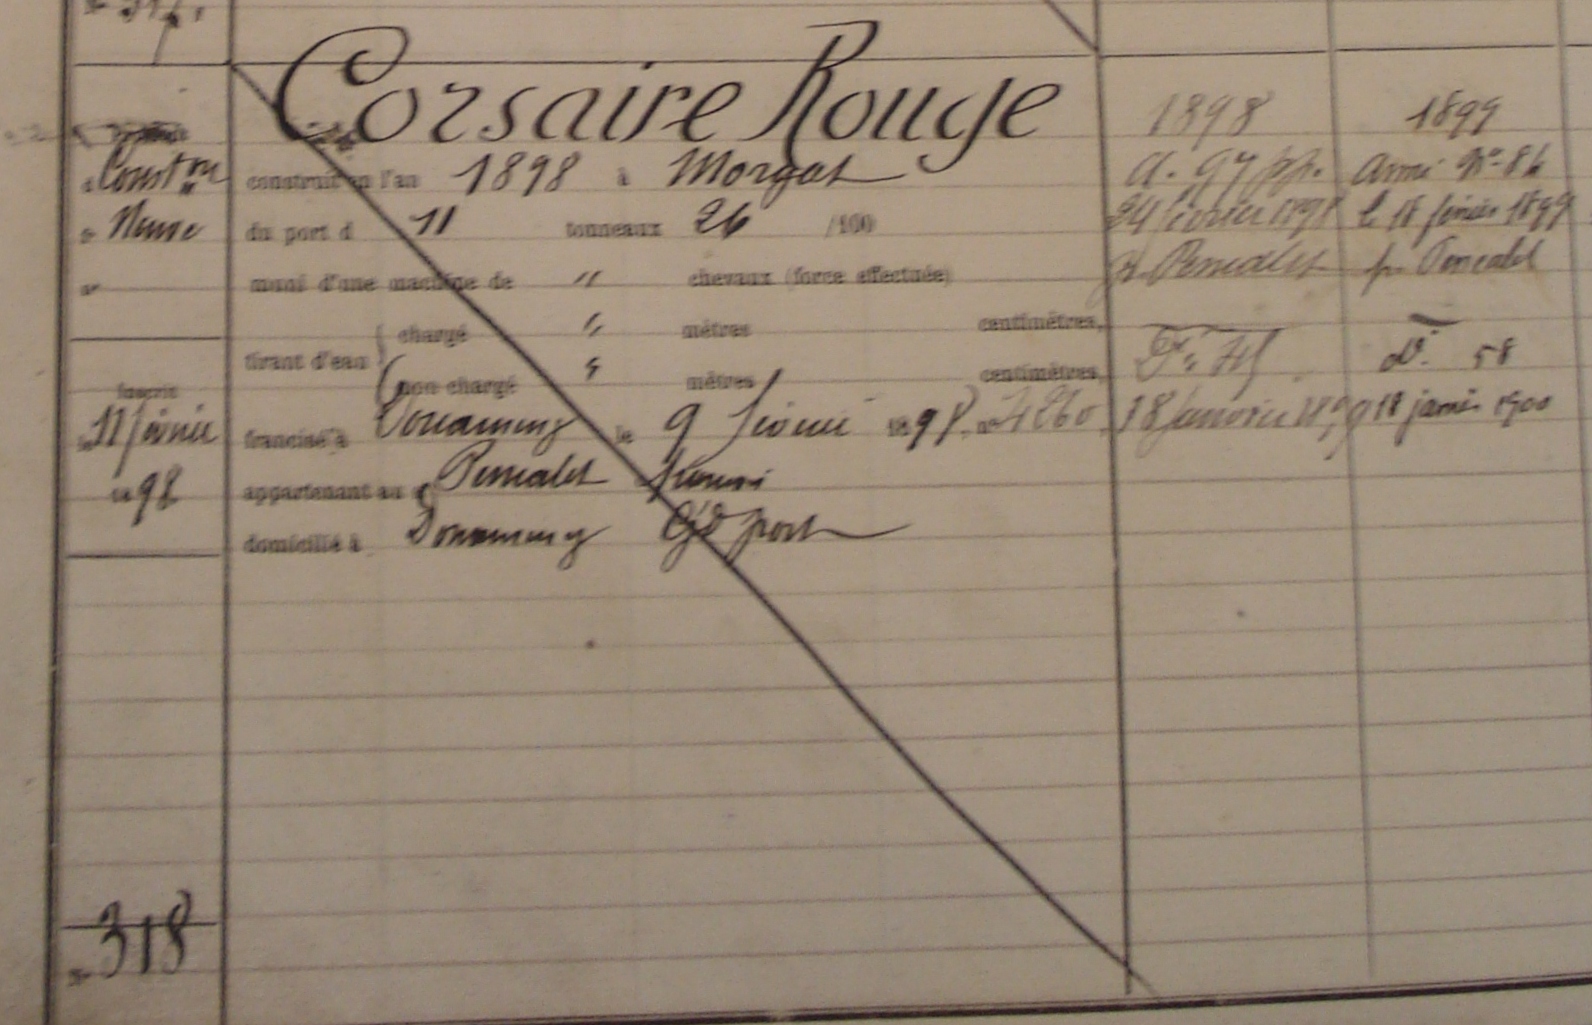 Corsaire Rouge
1898
1899
Constr on
Neuve
construit en l'an 1898 à Morgat
a. 97
armé N° 86
du port d 11 tonneaux 26 /100
24 février 1898
le 18 février 1899
muni d'une machine de " chevaux (force effectuée)
p. Penealet
p. Penealet
tirant d'eau
chargé " mètres centimètres,
non chargé " mètres centimètres,
D.
d. 58
Inscrit
le 11 février
1898
francisé à Douarnenez le 9 février 1898, n° 4260
18 janvier 1899
18 janvier 1900
appartenant au s
domicilié à Douarnenez Gd port
N° 318